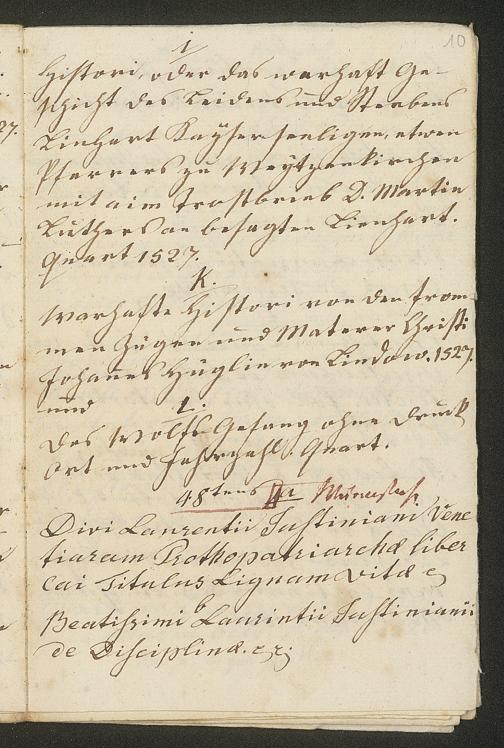 10
I
Histori, oder das warhaft Ge-
schicht des Leidens und Sterbens
Linhart Kayser seeligen, etwen
Pfarrers zu Weytzenkirchen
mit aim Trostbrieb D. Martin
Luthers an besagten Lienhart.
Quart 1527.
K.
Warhafte Histori von den from-
men Zügen und Materer Christi
Johannes Hüglin von Lindow. 1527.
und L.
Des Wolfs Gesang ohne Druck
Ort und Jahrzahl. Quart.
48tens
Divi Laurentii Justiniani Vene
tiaram Prothopatriarchæ liber
cui Titulus Lignum Vitæ
b
Beatissimi Laurintii Justinianii
de Disciplinæ.
27.